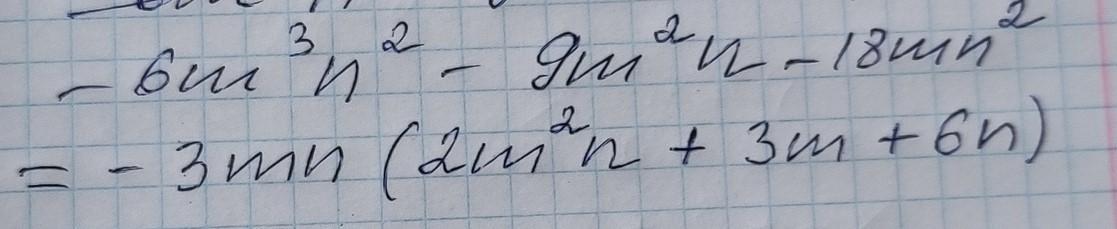 - 6m³n² - 9m²n - 18mn²
= - 3mn (2m²n + 3m + 6n)